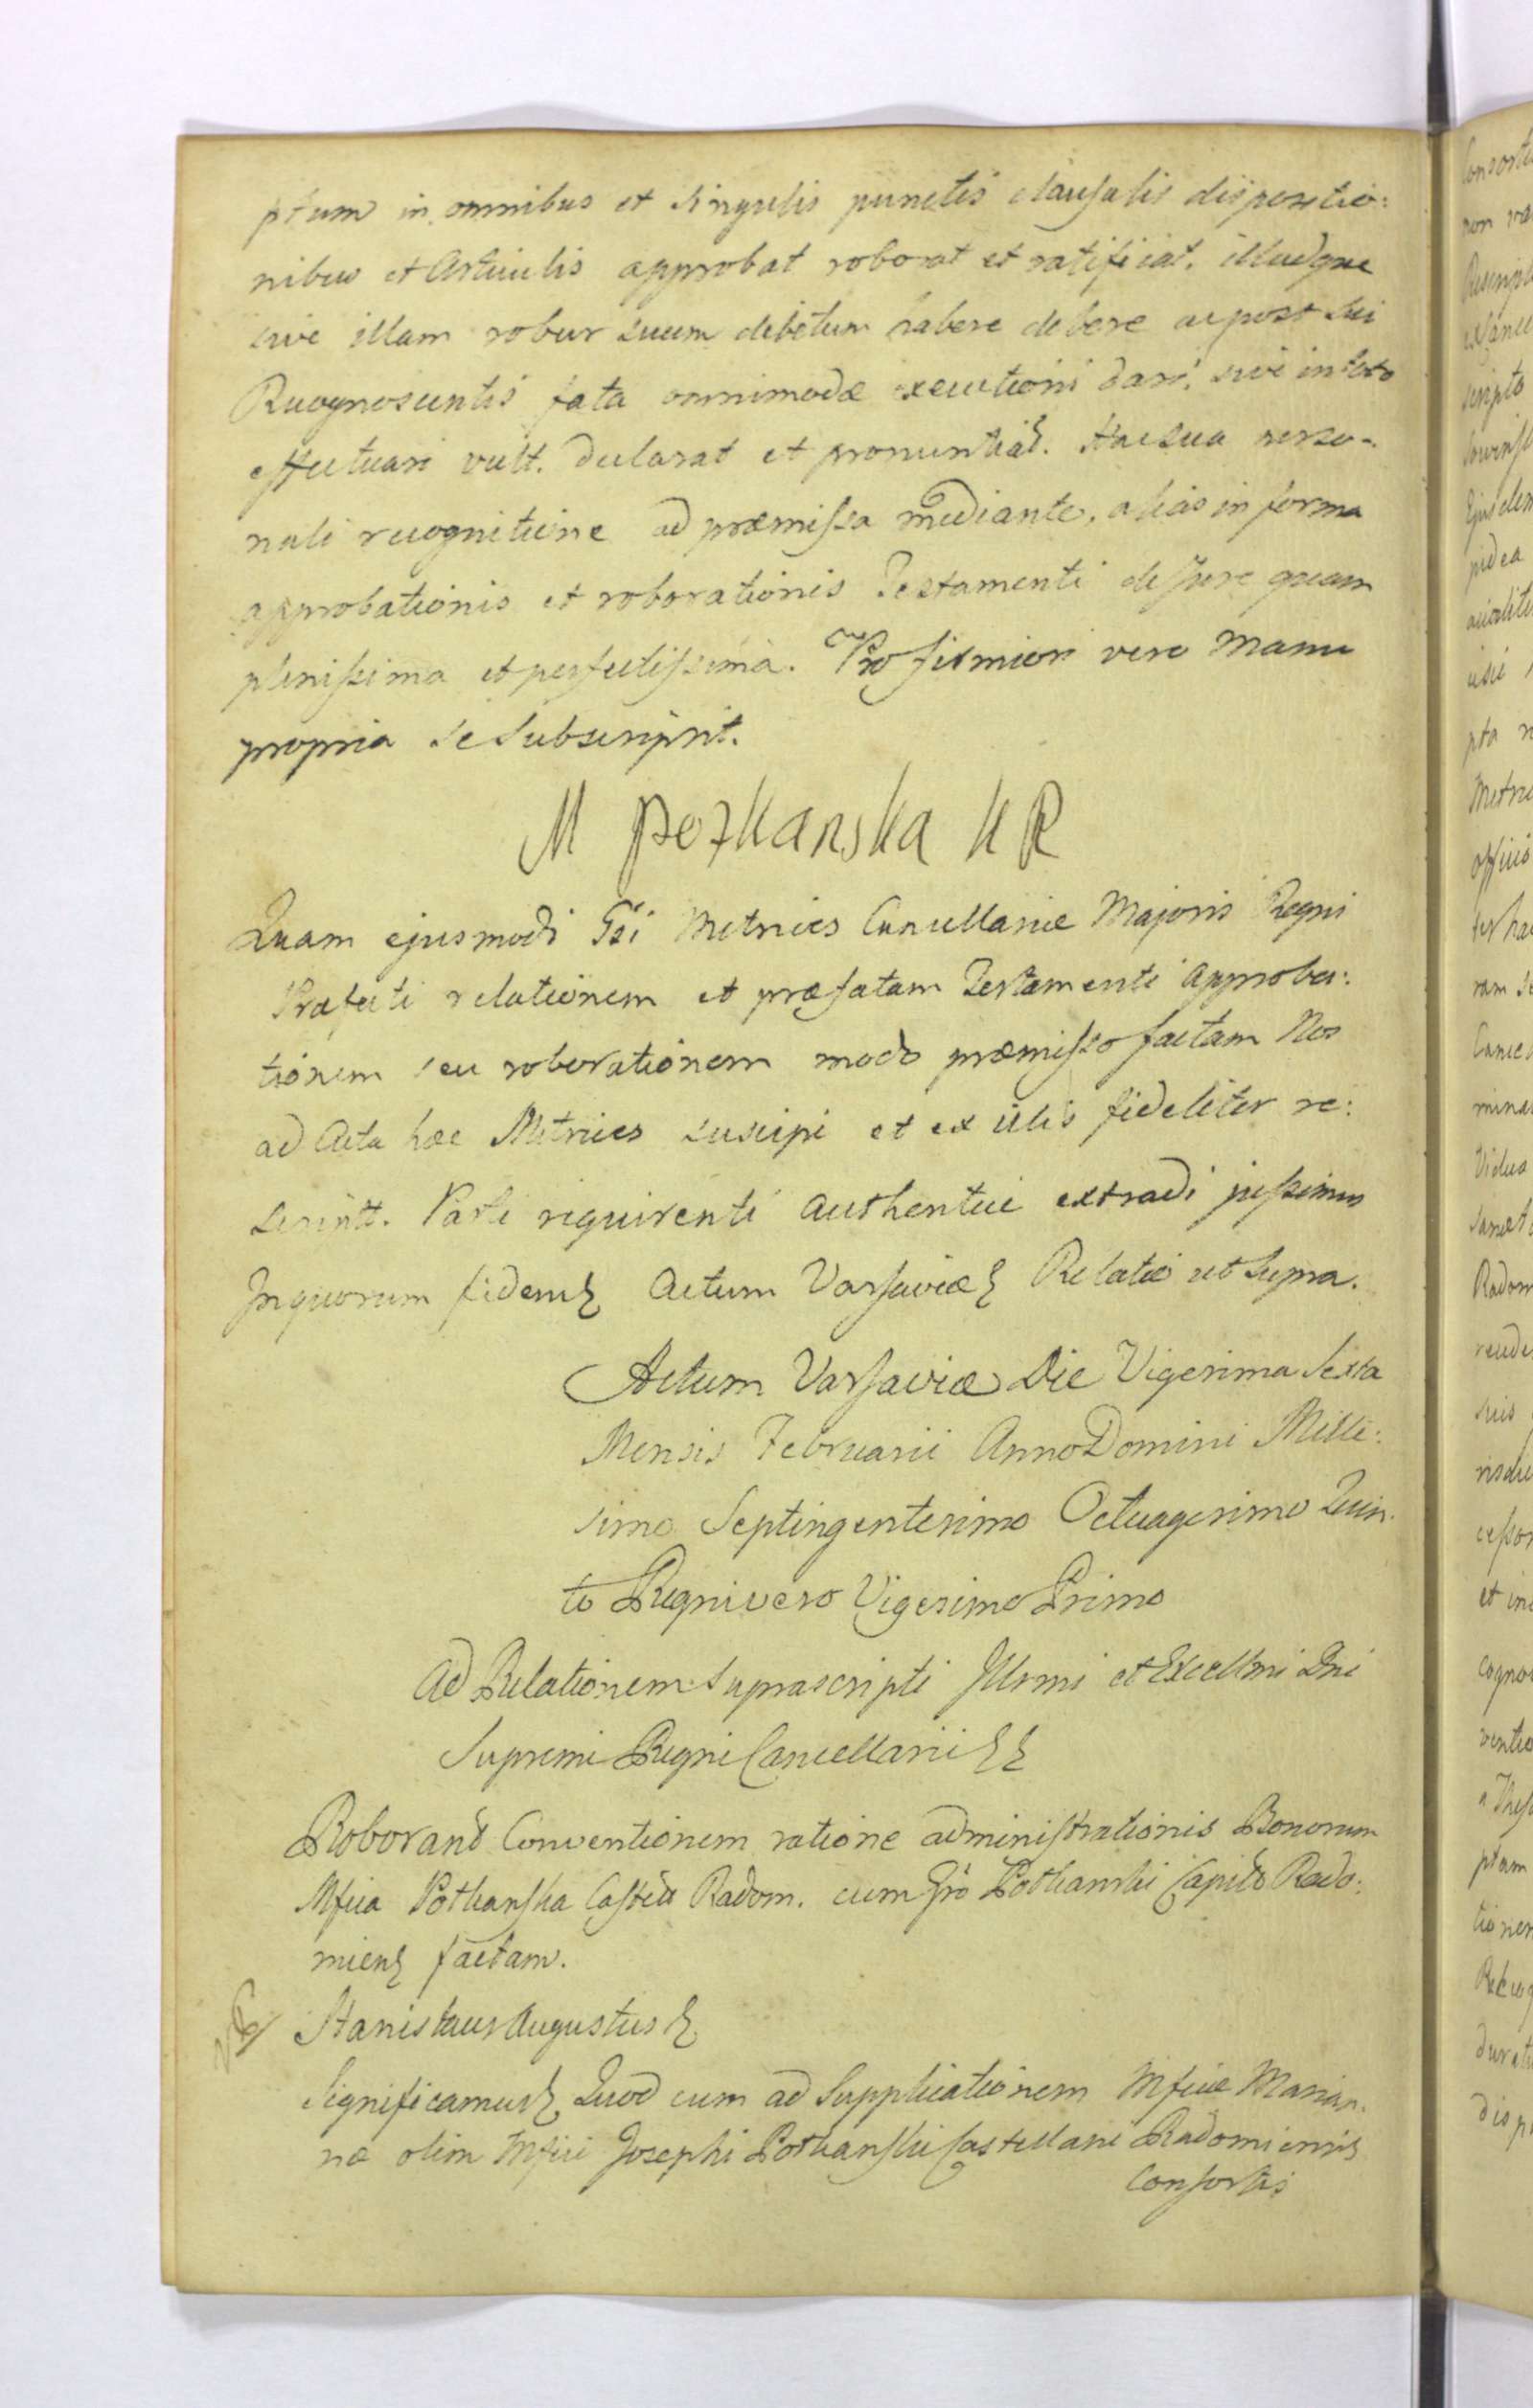 ptum in omnibus et singulis punctis clausulis dispositio:
nibus et Articulis approbat roborat et ratificat. illudque
sive illam robur suum debitum habere debere ac post sui
Recognoscentis fata omnimodæ executioni dari, sive in toto
effectuari vult. declarat et pronuntiat. Hac sua perso-
nali recognitione ad præmissa mediante, alias in forma
approbationis et roborationis Testamenti de jure quam
plenissima et perfectissima. Pro firmiori vero Manu
propria se subscripsit.
M Potkanska K R
Quam ejusmodi Gsi Metrices Cancellariæ Majoris Regni
Præfecti relationem et præfatam Testamenti approba:
tionem seu roborationem modo præmisso factam Nos
ad Acta hæc Metrices suscipi et ex illis fideliter re:
scriptt. Parti requirenti authentice extradi jussimus
In quorum fidem Actum Varsaviæ Relatio ut supra.
Actum Varsaviæ Die Vigesima Sexta
Mensis Februarii Anno Domini Mille:
simo Septingentesimo Octuagesimo Quin:
to Regni vero Vigesimo Primo
Ad Relationem suprascripti Illrmi et Excellmi Dni
Supremi Regni Cancellarii
Roborans Conventionem ratione administrationis Bonorum
Mfica Potkanska Castell Radom. cum Gso Potkanski Capito Rado:
miens factam.
Stanislaus Augustus
Significamus Quod cum ad Supplicationem Mficæ Marian:
næ olim Mfici Josephi Potkanski Castellani Radomiensis
Consortis